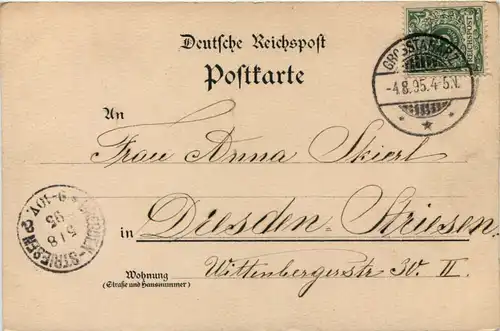 Deutsche Reichspost
Postkarte
REICHSPOST
-4.8.95.4-5N.
An
Frau Anna Skierl
in Dresden-Striesen.
Wohnung
(Straße und Hausnummer)
Wittenbergerstr 30. II.
DRESDEN-STRIESEN
5 / 8
95
9-10V.